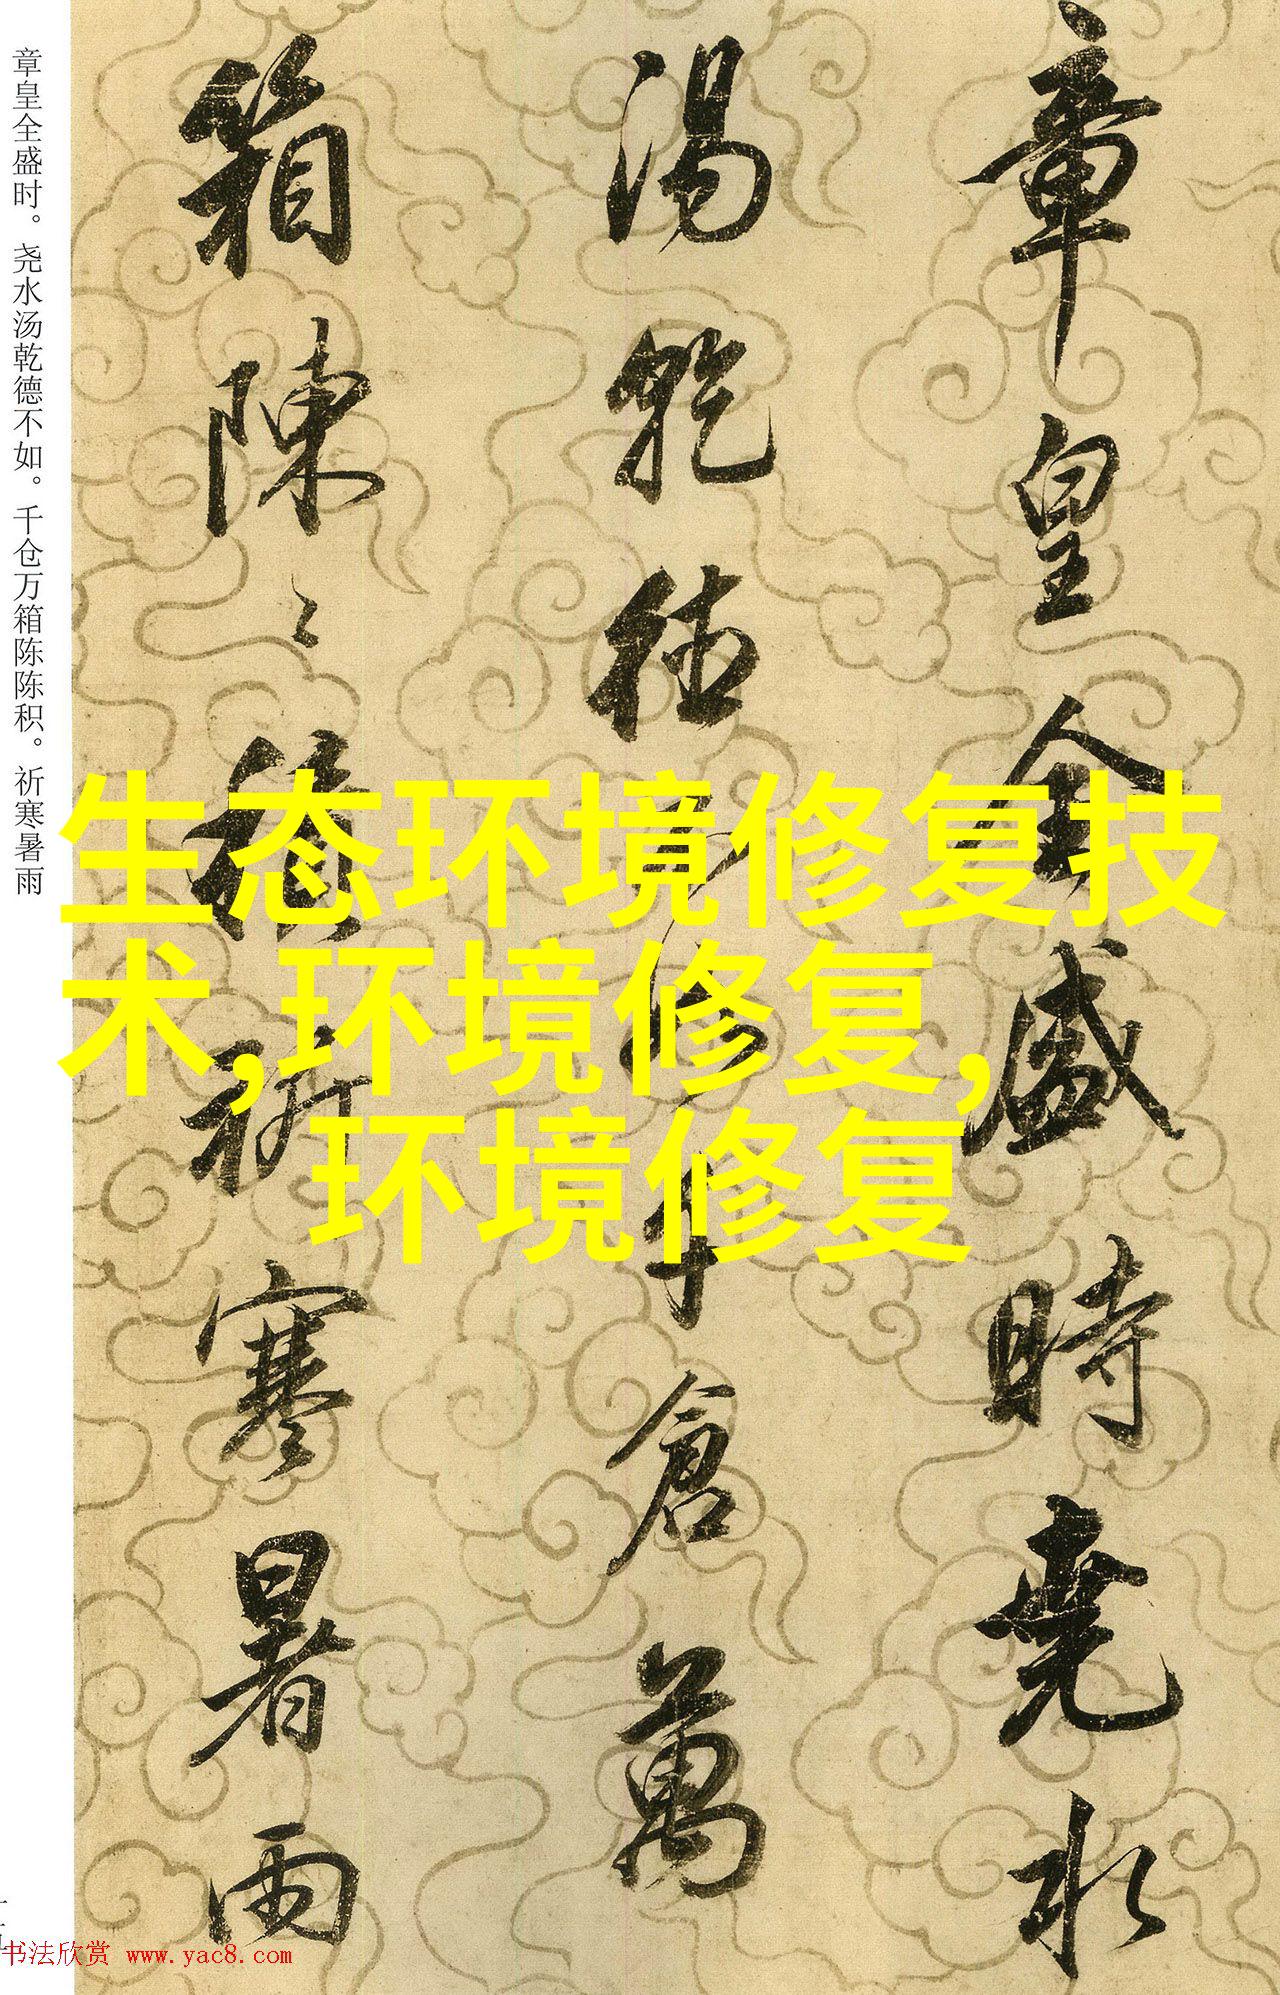 章皇全盛時堯水
湯乾德不如千倉萬
箱陳〻積祈寒暑雨
章皇全盛时。尧水汤乾德不如。千仓万箱陈陈积。祈寒暑雨
生态环境修复技
术,环境修复,
环境修复
书法欣赏 www.yac8.com